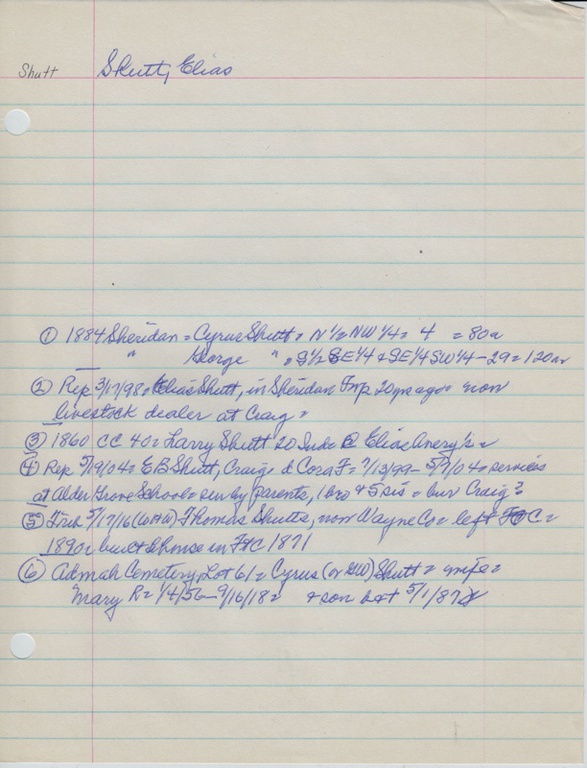 Shutt Shutt, Elias
① 1884 Sheridan = Cyrus Shutt = N ½ NW ¼ = 4 = 80a
" George " = S½ SE ¼ & SE ¼ SW ¼ - 29 = 120a
② Rep 3/17/98 = Elias Shutt, in Sheridan Twp 20 yrs ago = now
livestock dealer at Craig =
③ 1860 CC 40 = Larry Shutt 20 Ind = @ Elias Avery's =
④ Rep 5/19/04 = E B Shutt, Craig = d Cora F = 7/13/99 - 5/7/04 = services
at Alder Grove School = sur by parents, 1 bro & 5 sis = bur Craig?
⑤ 5/17/16 Thomas Shutts, now Wayne Co = left FtC =
1890 = built house in FtC 1871
⑥ Admah Cemetery, Lot 61 = Cyrus (or GW) Shutt = wife =
Mary R = 1/4/56 - 9/16/18 = & son b&d 5/1/87